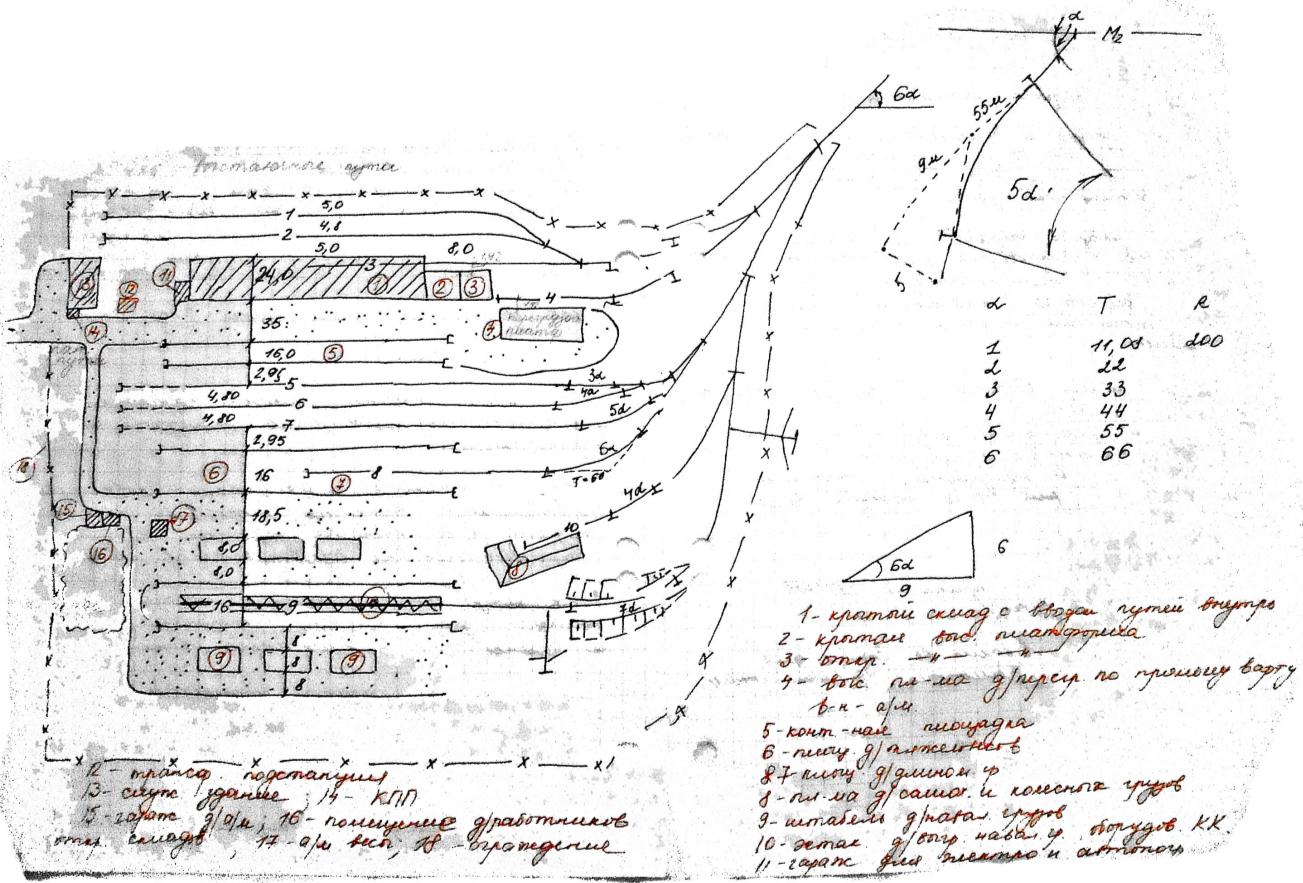 Выставочные пути
α
M₂
6α
55м
9м
5α
5
5,0
1
4,8
2
5,0
8,0
3
24,0
13
12
11
1
2
3
4
14
35
4
5
16,0
2,95
5
3α
4α
4,80
6
5α
4,80
7
2,95
6α
18
6
16
8
7
T=6α
4α
15
17
18,5
16
10
8,0
8
8,0
16
9
7α
8
9
8
9
8
α T R
1 11,08 200
2 22
3 33
4 44
5 55
6 66
6
6α
9
1 - крытый склад с вводом путей внутрь
2 - крытая выс. платформа
3 - откр. —"— —"—
4 - выс. пл-ма д/перегр. по прямому варту
в-н - а/м
5 - конт-ная площадка
6 - площ. д/тяжеловесов
7 - площ. д/длином. гр
8 - пл-ма д/самох. и колесных грузов
9 - штабель д/навал. грузов
10 - эстак. д/выгр. навал. гр. оборудов. КК.
11 - гараж для электро и автопогр
12 - трансф. подстанция
13 - служ. здание; 14 - КПП
15 - гараж д/а/м; 16 - помещение д/работников
откр. складов, 17 - а/м весы, 18 - ограждение